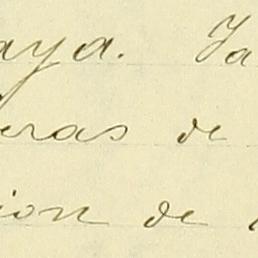 aya. Ja
eras de
ion de